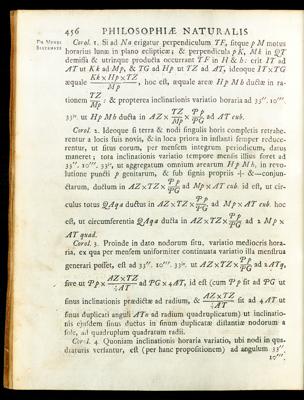 456 PHILOSOPHIÆ NATURALIS
De Mundi
Systemate
Corol. 1. Si ad Na erigatur perpendiculum TF, sitque pM motus
horarius lunæ in plano eclipticæ; & perpendicula pK, Mk in QT
demissa & utrinque producta occurrant TF in H & h: erit IT ad
AT ut Kk ad Mp, & TG ad Hp ut TZ ad AT, ideoque IT×TG
æquale Kk×Hp×TZ / Mp, hoc est, æquale areæ HpMh ductæ in ra-
tionem TZ / Mp: & propterea inclinationis variatio horaria ad 33″. 10‴.
33iv. ut HpMh ducta in AZ × TZ / Mp × Pp / PG ad AT cub.
Corol. 2. Ideoque si terra & nodi singulis horis completis retrahe-
rentur a locis suis novis, & in loca priora in instanti semper reduce-
rentur, ut situs eorum, per mensem integrum periodicum, datus
maneret; tota inclinationis variatio tempore mensis illius foret ad
33″. 10‴. 33iv, ut aggregatum omnium arearum HpMh, in revo-
lutione puncti p genitarum, & sub signis propriis + & — conjun-
ctarum, ductum in AZ×TZ× Pp / PG ad Mp×AT cub. id est, ut cir-
culus totus QAqa ductus in AZ×TZ× Pp / PG ad Mp×AT cub. hoc
est, ut circumferentia QAqa ducta in AZ×TZ× Pp / PG ad 2 Mp ×
AT quad.
Corol. 3. Proinde in dato nodorum situ, variatio mediocris hora-
ria, ex qua per mensem uniformiter continuata variatio illa menstrua
generari posset, est ad 33″. 10‴. 33iv. ut AZ×TZ× Pp / PG ad 2ATq,
sive ut Pp × AZ×TZ / ½AT ad PG × 4AT, id est (cum Pp sit ad PG ut
sinus inclinationis prædictæ ad radium, & AZ×TZ / ½AT sit ad 4AT ut
sinus duplicati anguli ATn ad radium quadruplicatum) ut inclinatio-
nis ejusdem sinus ductus in sinum duplicatæ distantiæ nodorum a
sole, ad quadruplum quadratum radii.
Corol. 4. Quoniam inclinationis horaria variatio, ubi nodi in qua-
draturis versantur, est (per hanc propositionem) ad angulum 33″.
10‴.